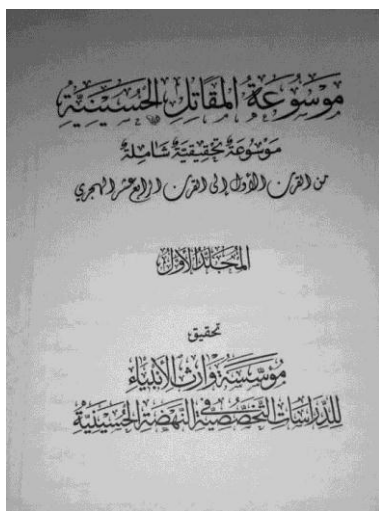 موسوعة المقاتل الحسينية
موسوعة تحقيقية شاملة
من القرن الأول إلى القرن الرابع عشر الهجري
المجلد الأول
تحقيق
مؤسسة وارث الأنبياء
للدراسات التخصصية في النهضة الحسينية